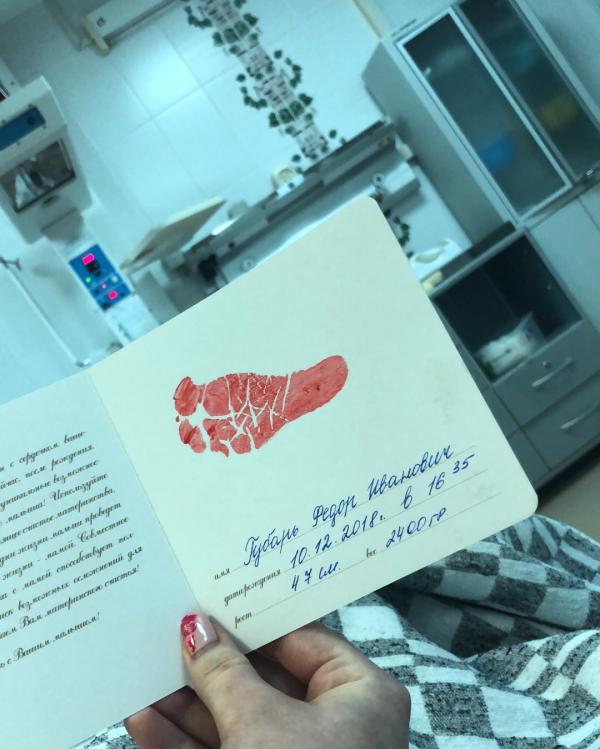 и с сердечком ваше-
сейчас, после рождения
уникальном возможнос-
малыша! Используйте
счастье материнства.
дни жизни малыш проведет
жизни - мамой. Совместное
с мамой способствует пол-
риск возможных осложнений для
Вам материнского счастья!
с Вашим малышом!
имя Губарь Федор Иванович
дата рождения 10.12.2018г. в 16 35
рост 47 см. вес 2400 гр